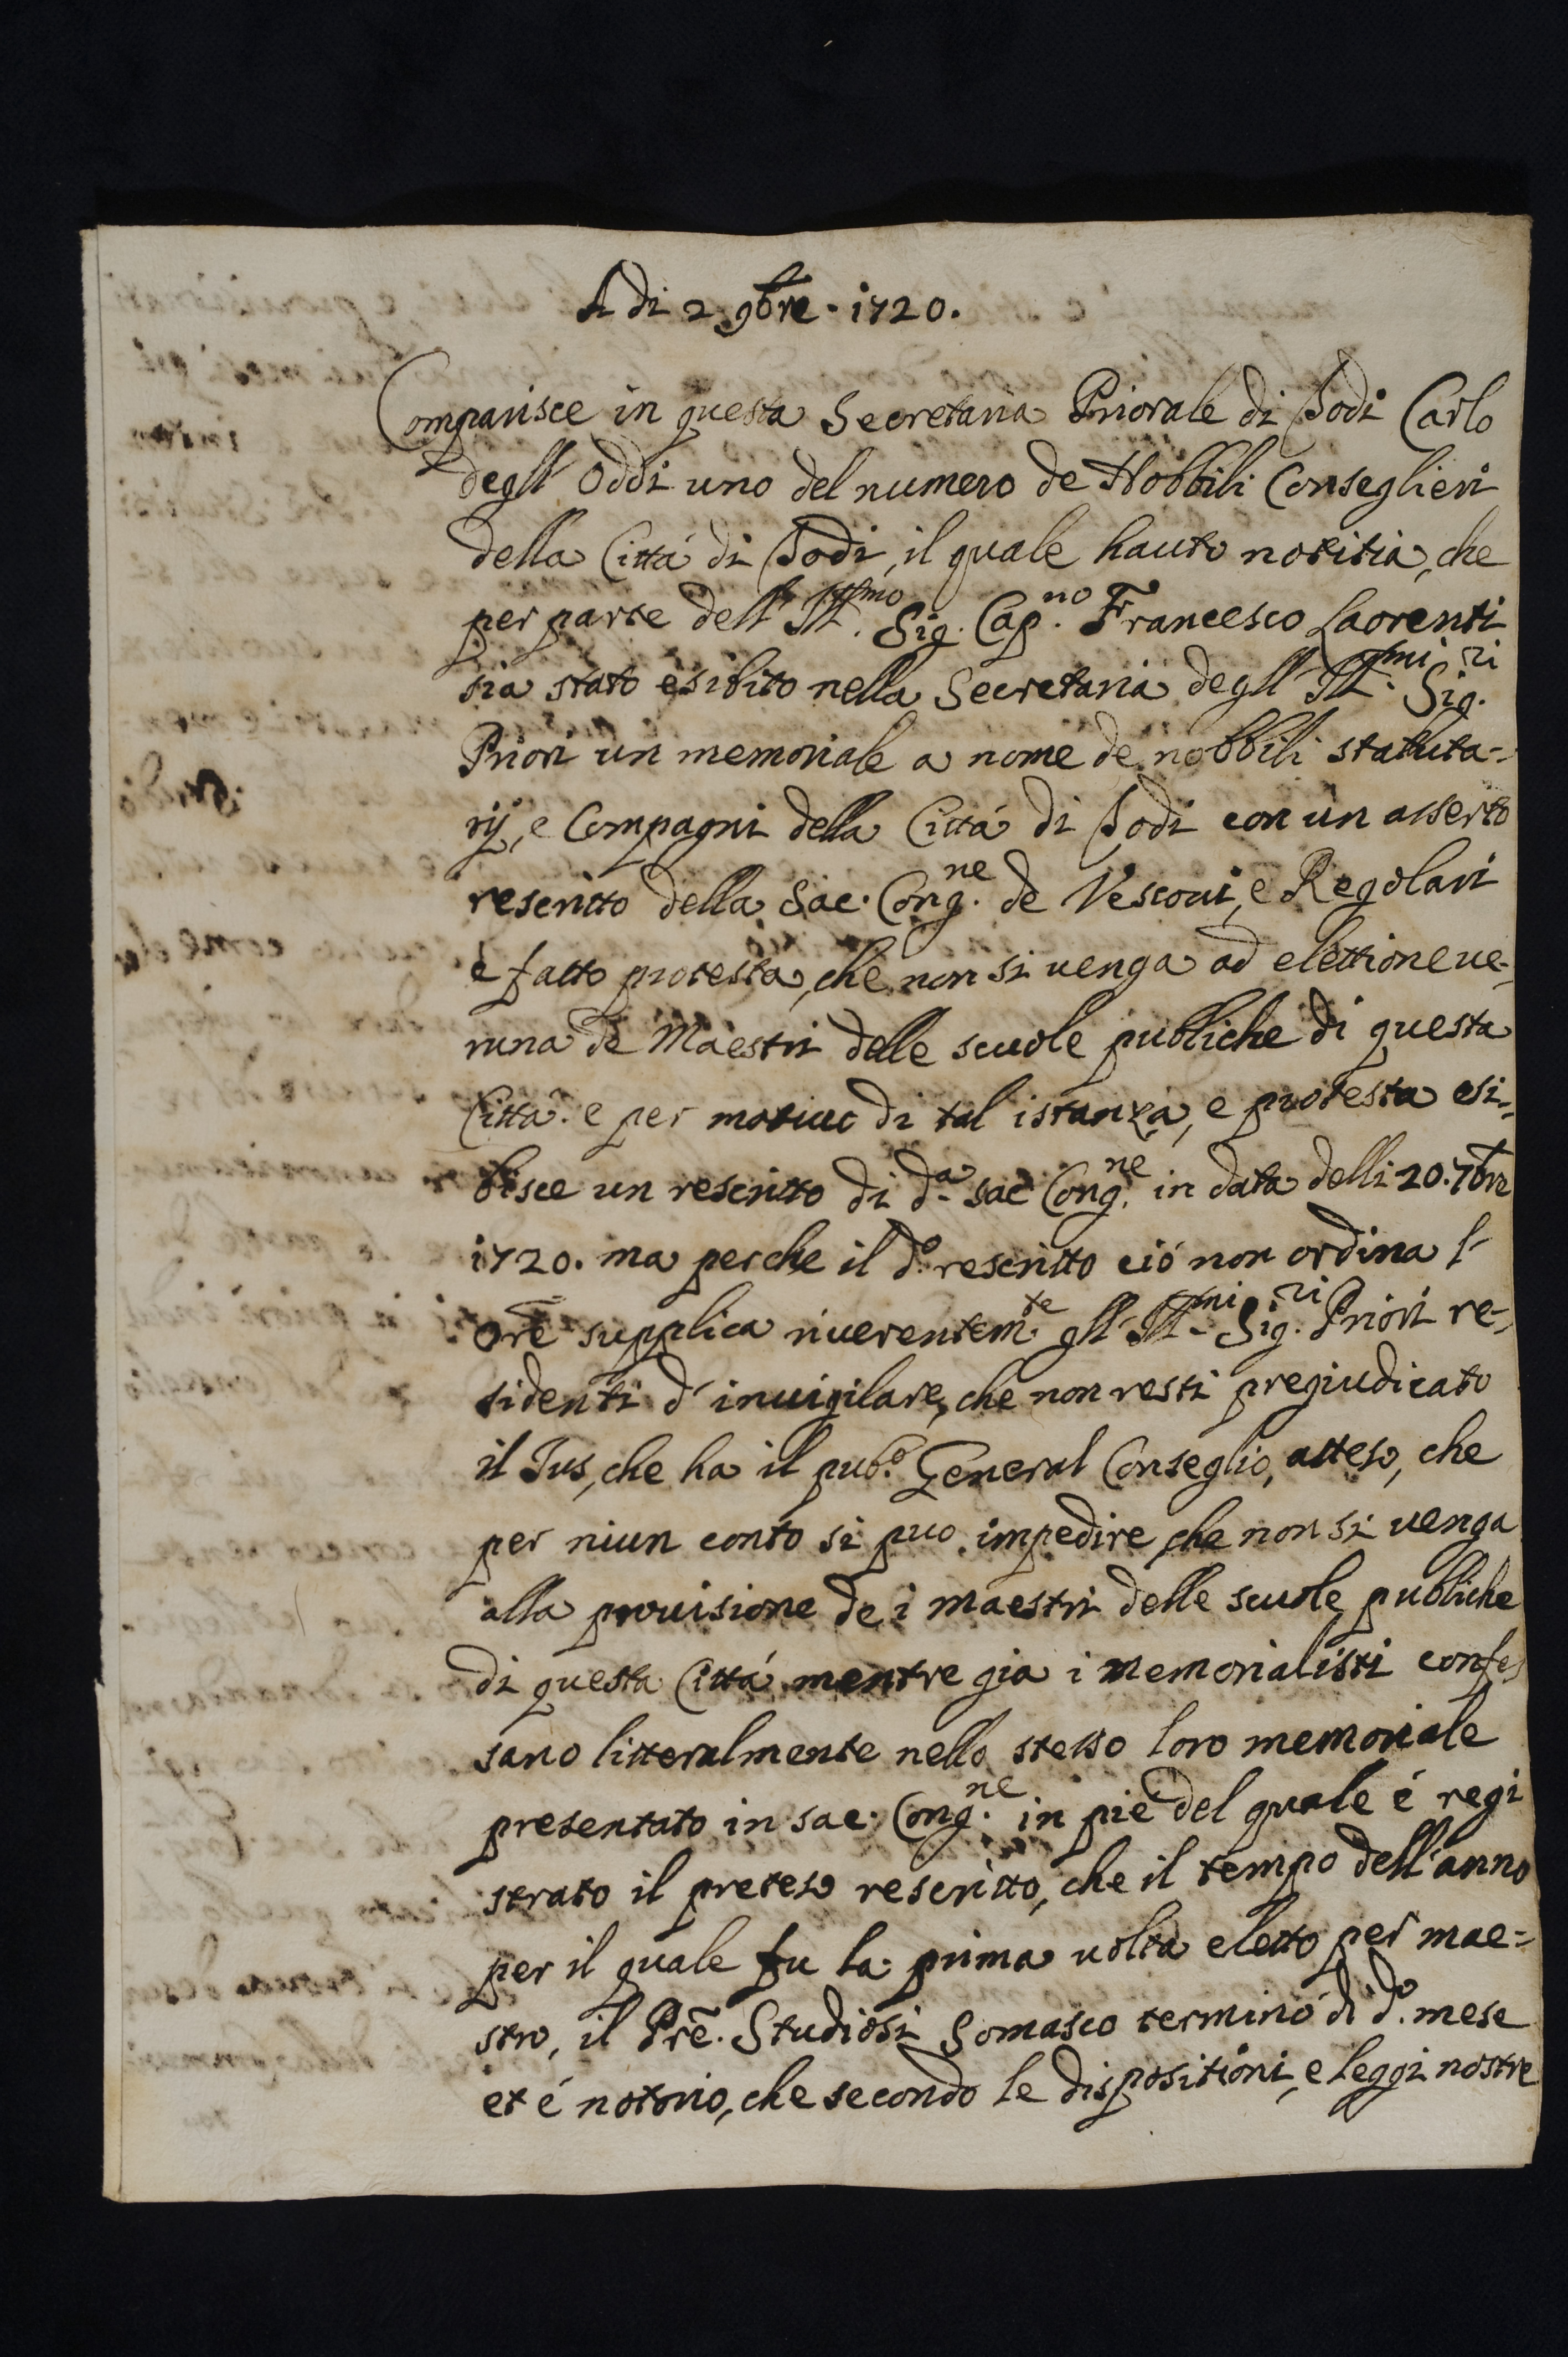 A di 2 9bre. 1720.
Comparisce in questa Secretaria Priorale di Todi Carlo
degl'Oddi uno del numero de Nobbili Conseglieri
della Cittá di Todi, il quale hauto notitia, che
per parte dell'Ill.ssmo Sig. Cap.no Francesco Laorenti
sia stato esibito nella Secretaria degl'Ill.mi Sig.ri
Priori un memoriale a nome de nobbili statuta-
rij, e Compagni della Cittá di Todi con un asserto
rescritto della Sac. Cong.ne de Vescoui, e Regolari
e fatto protesta, che non si uenga ad elettione ue-
runa de Maestri delle scuole publiche di questa
Cittá. e per motiuo di tal istanza, e protesta esi-
bisce un rescritto di d.a sac Cong.ne in data delli 20. 7bre
1720. ma perche il d.o rescritto ció non ordina l'
Ore supplica riuerentem.te gl'Ill.mi Sig.ri Priori re-
sidenti d'inuigilare, che non resti pregiudicato
il Jus, che ha il pub.o General Conseglio, atteso, che
per niun conto si puo impedire, che non si uenga
alla prouisione de i maestri delle scuole publiche
di questa Cittá mentre gia i memorialisti confes
sano litteralmente nello stesso loro memoriale
presentato in sac. Cong.ne in pie del quale é regi
strato il preteso rescritto, che il tempo dell'anno
per il quale fu la prima uolta eletto per mae-
stro, il Prē. Studiosi Somasco terminó di d.o mese
et é notorio, che secondo le dispositioni, e leggi nostre